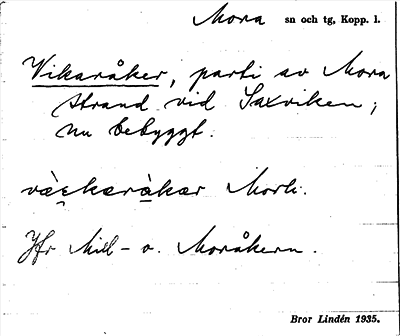 Mora sn och tg, Kopp. l.
Vikaråker, parti av Mora
strand vid Saxviken;
nu bebyggt.
Morli.
Jfr Mill- o. Moråkern.
Bror Lindén 1935.